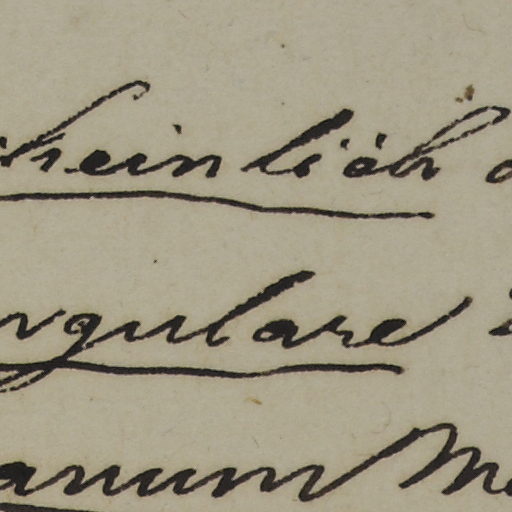 scheinlich
ngulare
anum Me